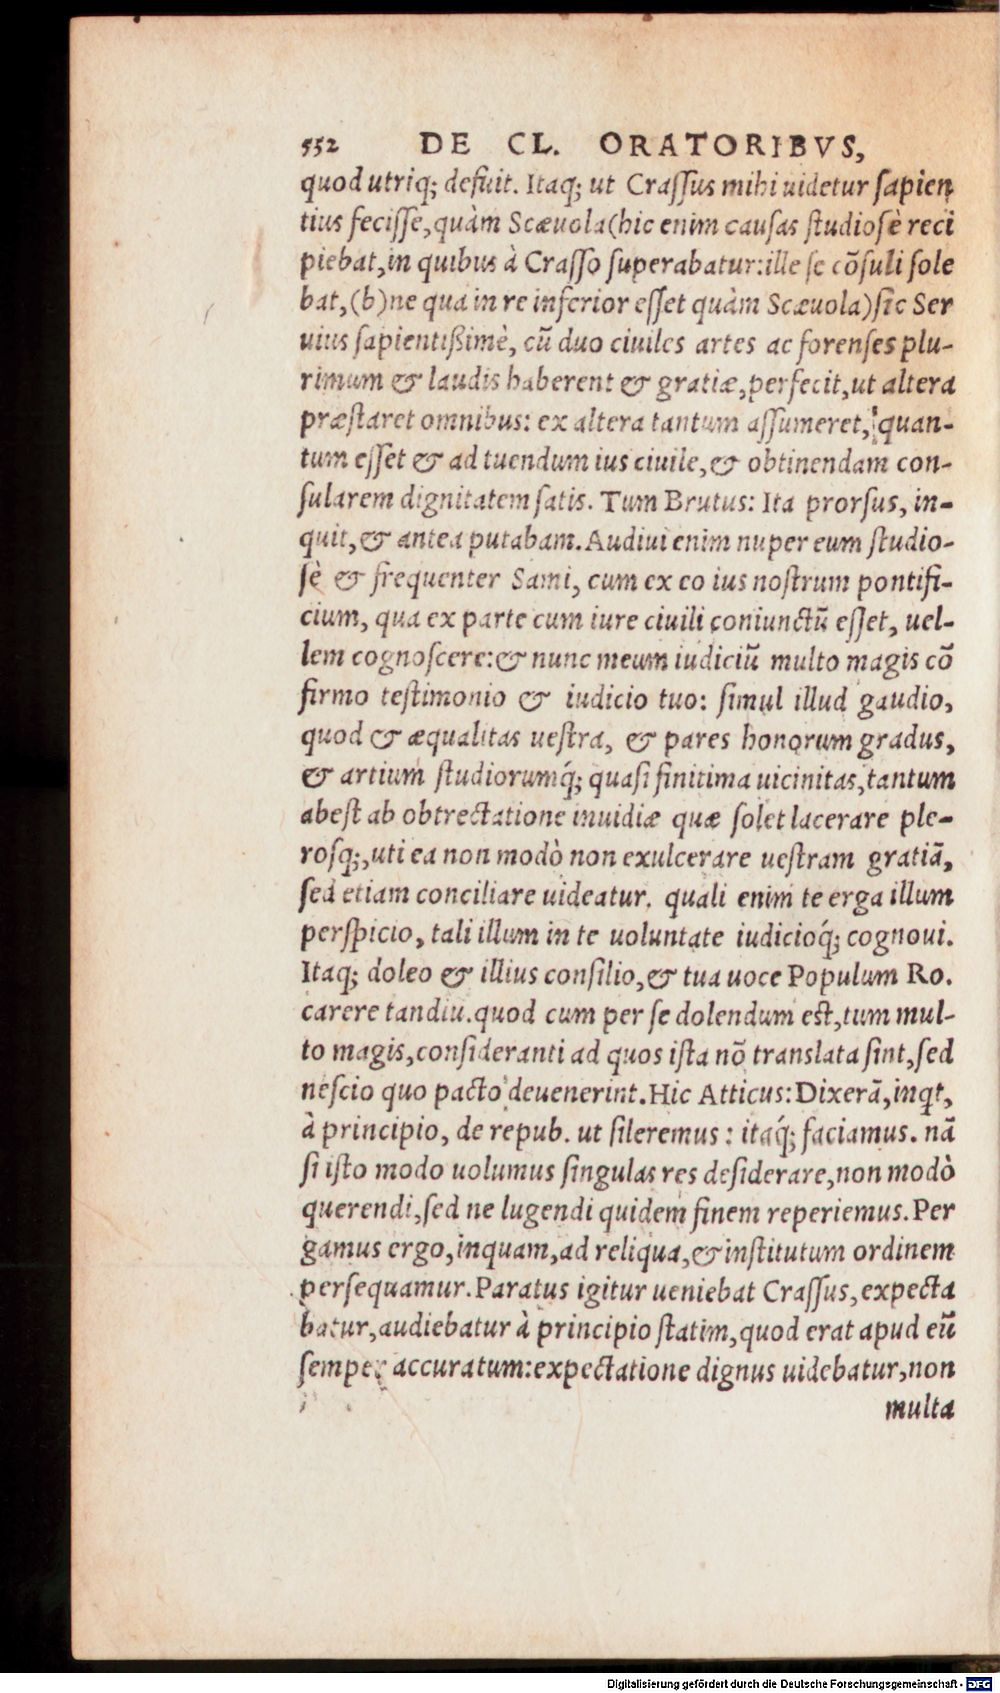 552 DE CL. ORATORIBVS,
quod utriq; defuit. Itaq; ut Craſſus mihi uidetur ſapien
tius feciſſe, quàm Scæuola (hic enim cauſas ſtudioſè reci
piebat, in quibus à Craſſo ſuperabatur: ille ſe cõſuli ſole
bat, (b) ne qua in re inferior eſſet quàm Scæuola) ſic Ser
uius ſapientißimè, cũ duo ciuiles artes ac forenſes plu-
rimum & laudis haberent & gratiæ, perfecit, ut altera
præſtaret omnibus: ex altera tantum aſſumeret, quan-
tum eſſet & ad tuendum ius ciuile, & obtinendam con-
ſularem dignitatem ſatis. Tum Brutus: Ita prorſus, in-
quit, & antea putabam. Audiui enim nuper eum ſtudio-
ſè & frequenter Sami, cum ex eo ius noſtrum pontifi-
cium, qua ex parte cum iure ciuili coniunctũ eſſet, uel-
lem cognoſcere: & nunc meum iudiciũ multo magis cõ
firmo teſtimonio & iudicio tuo: ſimul illud gaudio,
quod & æqualitas ueſtra, & pares honorum gradus,
& artium ſtudiorumq́; quaſi finitima uicinitas, tantum
abeſt ab obtrectatione inuidiæ quæ ſolet lacerare ple-
roſq;, uti ea non modò non exulcerare ueſtram gratiã,
ſed etiam conciliare uideatur. quali enim te erga illum
perſpicio, tali illum in te uoluntate iudicioq́; cognoui.
Itaq; doleo & illius conſilio, & tua uoce Populum Ro.
carere tandiu. quod cum per ſe dolendum eſt, tum mul-
to magis, conſideranti ad quos iſta nõ translata ſint, ſed
neſcio quo pacto deuenerint. Hic Atticus: Dixerã, inqt,
à principio, de repub. ut ſileremus: itaq́; faciamus. nã
ſi iſto modo uolumus ſingulas res deſiderare, non modò
querendi, ſed ne lugendi quidem finem reperiemus. Per
gamus ergo, inquam, ad reliqua, & inſtitutum ordinem
perſequamur. Paratus igitur ueniebat Craſſus, expecta
batur, audiebatur à principio ſtatim, quod erat apud eũ
ſemper accuratum: expectatione dignus uidebatur, non
multa
Digitalisierung gefördert durch die Deutsche Forschungsgemeinschaft - DFG